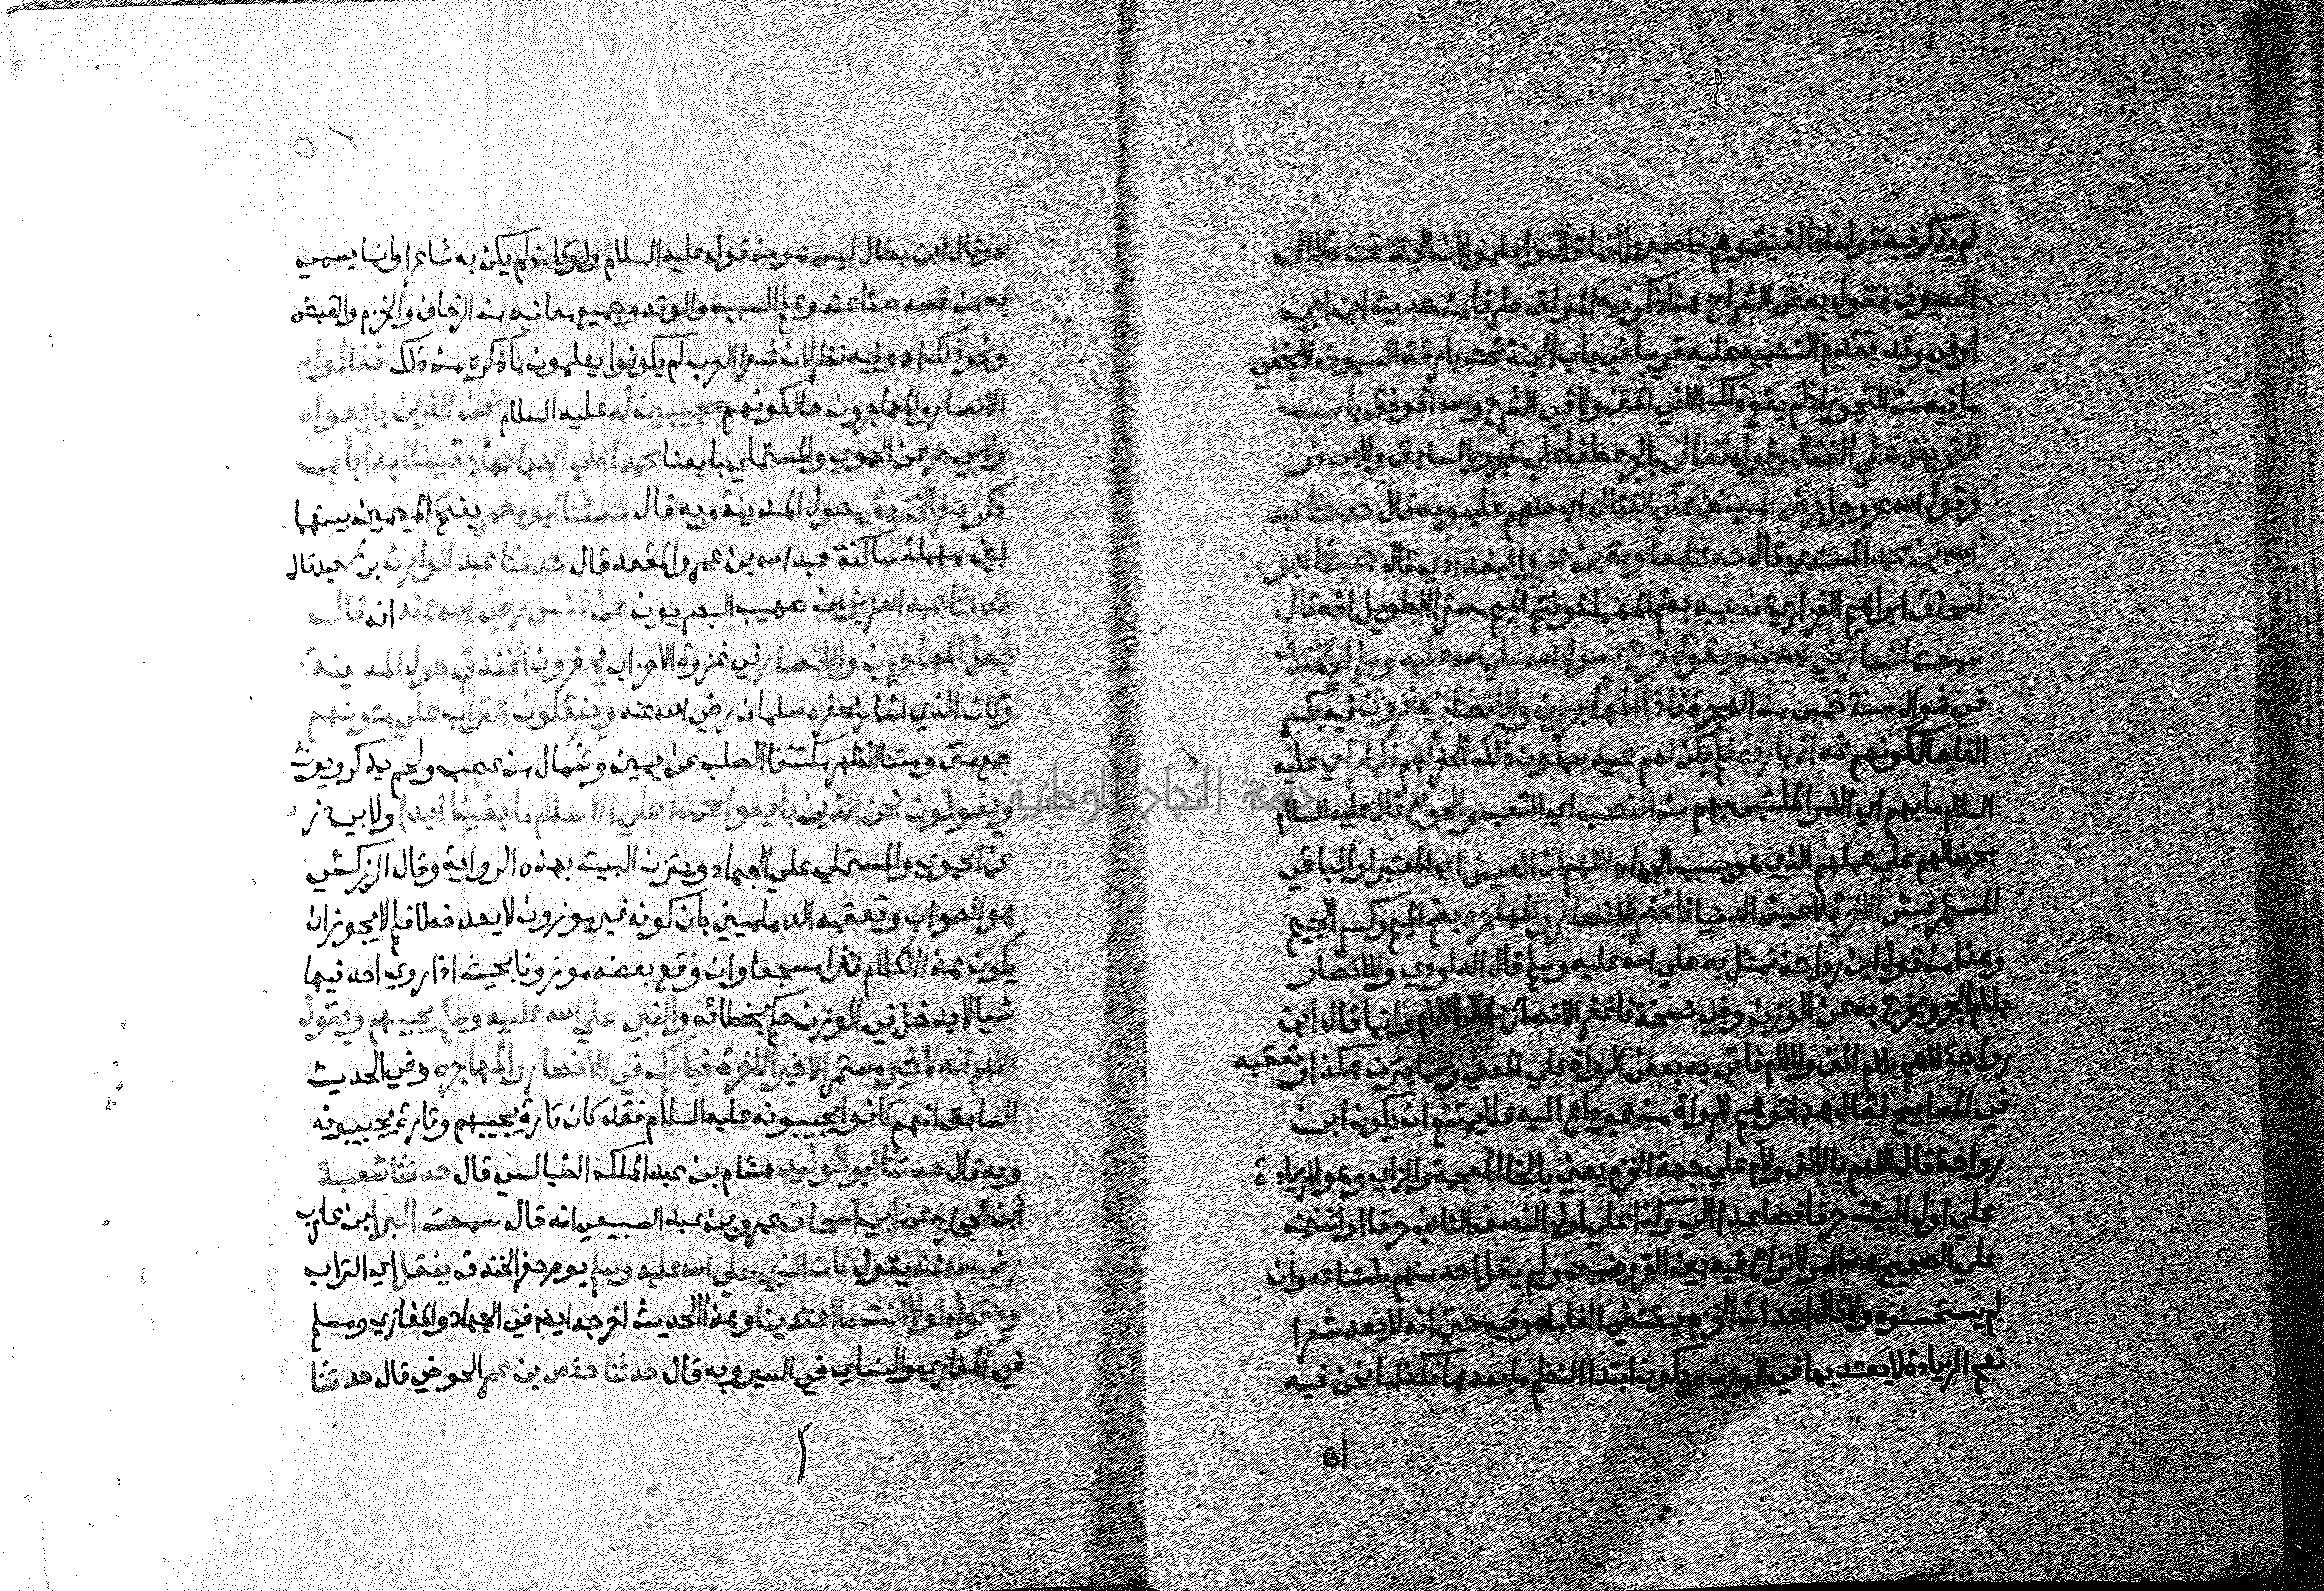 لم يذكر فيه قوله اذا لقيتموهم فاصبروا وانما قال واعلموا ان الجنة تحت ظلال
السيوف فقول بعض الشراح هنا ذكر فيه المولف طرفا من حديث ابن ابي
اوفي وقد تقدم التنبيه عليه قريبا في باب الجنة تحت بارقة السيوف لا يخفي
ما فيه من التجوز اذ لم يقع ذلك لا في المتن ولا في الشرح والله الموفق باب
التحريض علي القتال وقوله تعالي بالجر عطفا علي المجرور السابق ولابي ذر
وقول الله عز وجل حرض المومنين علي القتال اي حثهم عليه وبه قال حدثنا عبد
الله بن محمد المسندي قال حدثنا معاوية بن عمرو البغدادي قال حدثنا ابو
اسحاق ابراهيم الفزاري عن حميد بضم المهملة وفتح الميم مصغرا الطويل انه قال
سمعت انسا رضي الله عنه يقول خرج رسول الله صلي الله عليه وسلم الي الخندق
في شوال سنة خمس من الهجرة فاذا المهاجرون والانصار يحفرون فيه بكسر
الفا حال كونهم غداة باردة فلم يكن لهم عبيد يعملون ذلك الحفر لهم فلما راي عليه
السلام ما بهم اي الامر الملتبس بهم من النصب اي التعب والجوع قال عليه السلام
محرضا لهم علي عملهم الذي هو بسبب الجهاد اللهم ان العيش اي المعتبر او الباقي
المستمر عيش الاخرة لا عيش الدنيا فاغفر للانصار والمهاجره بضم الميم وكسر الجيم
وهذا من قول ابن رواحة تمثل به صلي الله عليه وسلم قال الداودي وللانصار
بلام الجر ويخرج به عن الوزن وفي نسخة فاغفر الانصار اللام وانما قال ابن
رواحة لاهم بلام الف ولا لام فاتي به بعض الرواة علي المعني وانما يتزن هكذا وتعقبه
في المصابيح فقال هذا توهيم للرواة من غير داع اليه فلا يمتنع ان يكون ابن
رواحة قال اللهم بالالف ولام علي جهة الخزم يعني بالخا المعجمة والزاي وهو الزيادة
علي اول البيت حرفا فصاعدا الي وكذا علي اول النصف الثاني حرفا او اثنين
علي الصحيح هذا امر لا نزاع فيه بين العروضيين ولم يقل احد منهم بامتناعه وان
لم يستحسنوه ولا قال احد ان الخزم يقتضي الغا ما هو فيه حتي انه لا يعد شعرا
نعم الزيادة لا يعتد بها في الوزن ويكون ابتدا النظم ما بعدها فكذا ما نحن فيه
٥١
٥٧
اه وقال ابن بطال ليس هو من قوله عليه السلام ولو كان لم يكن به شاعرا وانما يسمي
به من قصد صناعته وعلم السبب والوتد وجميع معانيه من الزحاف والخزم والقبض
ونحو ذلك اه وفيه نظر لان شعرا العرب لم يكونوا يعلمون ما ذكره من ذلك فقالوا
الانصار والمهاجرون حال كونهم مجيبين له عليه السلام نحن الذين بايعوا
ولابي ذر عن الحموي والمستملي بايعنا محمدا علي الجهاد ما بقينا ابدا باب
ذكر حفر الخندق حول المدينة وبه قال حدثنا ابو معمر بفتح الميمين بينهما
عين مهملة ساكنة عبد الله بن عمرو المقعد قال حدثنا عبد الوارث بن سعيد قال
حدثنا عبد العزيز بن صهيب البصريون عن انس رضي الله عنه انه قال
جعل المهاجرون والانصار في غزوة الاحزاب يحفرون الخندق حول المدينة
وكان الذي اشار بحفره سلمان رضي الله عنه وينقلون التراب علي متونهم
جمع متن ومتنا الظهر مكتنفا الصلب عن يمين وشمال من عصب ولحم يذكر ويونث
ويقولون نحن الذين بايعوا محمدا علي الاسلام ما بقينا ابدا ولابي ذر
عن الحموي والمستملي علي الجهاد ويتزن البيت بهذه الرواية وقال الزركشي
هو الصواب وتعقبه الدماميني بان كونه غير موزون لا يعد خطا فلم لا يجوز ان
يكون هذا الكلام نثرا مسجعا وان وقع بعضه موزونا بحيث اذا روي احد فيها
شيا لا يدخل في الوزن حكم بخطائه والنبي صلي الله عليه وسلم يجيبهم ويقول
اللهم انه لا خير مستمر الا خير الاخرة فبارك في الانصار والمهاجره وفي الحديث
السابق انهم كانوا يجيبونه عليه السلام فقد كان تارة يجيبهم وتارة يجيبونه
وبه قال حدثنا ابو الوليد هشام بن عبد الملك الطيالسي قال حدثنا شعبة
ابن الحجاج عن ابي اسحاق عمرو بن عبد السبيعي انه قال سمعت البرا بن عازب
رضي الله عنه يقول كان النبي صلي الله عليه وسلم يوم حفر الخندق ينقل اي التراب
ويقول لولا انت ما اهتدينا وهذا الحديث اخرجه ايضا في الجهاد والمغازي ومسلم
في المغازي والنساي في السير وبه قال حدثنا حفص بن عمر الحوضي قال حدثنا
جامعة النجاح الوطنية